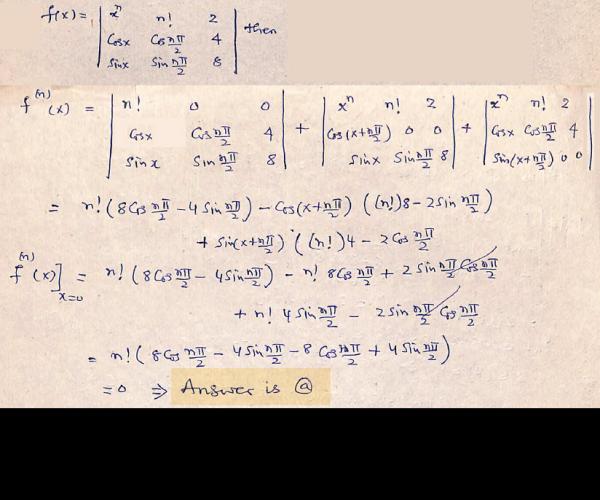 f(x) = | xⁿ n! 2 |
| Cosx Cos nπ/2 4 | then
| Sinx Sin nπ/2 8 |
f⁽ⁿ⁾(x) = | n! 0 0 | + | xⁿ n! 2 | + | xⁿ n! 2 |
| Cosx Cos nπ/2 4 | | Cos(x+nπ/2) 0 0 | | Cosx Cos nπ/2 4 |
| Sinx Sin nπ/2 8 | | Sinx Sin nπ/2 8 | | Sin(x+nπ/2) 0 0 |
= n! (8 Cos nπ/2 - 4 Sin nπ/2) - Cos(x+nπ/2) ((n!)8 - 2 Sin nπ/2)
+ Sin(x+nπ/2) ((n!)4 - 2 Cos nπ/2
f⁽ⁿ⁾(x)]x=0 = n! (8 Cos nπ/2 - 4 Sin nπ/2) - n! 8 Cos nπ/2 + 2 Sin nπ/2 Cos nπ/2
+ n! 4 Sin nπ/2 - 2 Sin nπ/2 Cos nπ/2
= n! (8 Cos nπ/2 - 4 Sin nπ/2 - 8 Cos nπ/2 + 4 Sin nπ/2)
= 0 ⇒ Answer is ⓐ